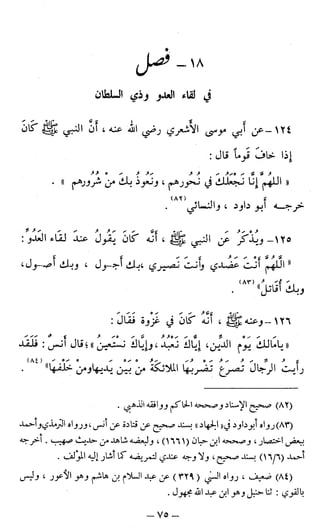 ١٨ - فصل
في لقاء العدو وذي السلطان
١٢٤ - عن أبي موسى الأشعري رضي الله عنه، أنَّ النبي ﷺ كَانَ
إذا خافَ قوماً قال:
«اللهمَّ إنَّا نَجْعَلُكَ في نُحورِهم، ونَعُوذُ بِكَ مِنْ شُرُورِهم».
خرجه أبو داود، والنسائي (٨٢).
١٢٥ - ويُذْكَرُ عَنِ النبي ﷺ، أنَّه كَانَ يَقُولُ عندَ لقاءِ العدُوِّ:
«اللَّهُمَّ أَنْتَ عَضُدي وأنتَ نَصيري، بِكَ أجول، وبكَ أصول،
وبِكَ أُقاتلُ» (٨٣).
١٢٦ - وعنه ﷺ، أنَّهُ كَانَ في غزوة فَقَالَ:
«يامَالِكَ يومِ الدِّينِ، إيَّاكَ نَعبُدُ، وإيَّاكَ نستَعينُ»؛ قال أنسٌ: فلَقَد
رأيتُ الرِّجالَ تُصرَعُ تَضْرِبُها الملائكةُ مِنْ بَيْنِ يديها ومن خَلْفِها» (٨٤).
(٨٢) صحيح الإسناد وصححه الحاكم ووافقه الذهبي.
(٨٣) رواه أبو داود في «الجهاد» بسند صحيح عن قتادة عن أنس، ورواه الترمذي وأحمد
ببعض اختصار، وصححه ابن حبان (١٦٦١)، ولبعضه شاهد من حديث صهيب. أخرجه
أحمد (١٦/٦) بسند صحيح، ولا وجه عندي لتمريضه كما أشار إليه المؤلف.
(٨٤) ضعيف، رواه السني (٣٢٩) عن عبد السلام بن هاشم وهو الأعور، وليس
بالقوي: ثنا حنبل وهو ابن عبد الله مجهول.
— ٧٥ —